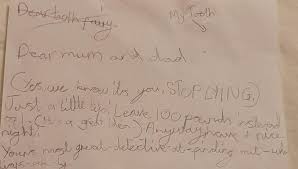 Dear tooth fairy, My Tooth
Dear mum and dad.
(Yes, we know its you, STOP LYING.)
Just a little tip, Leave 100 pounds instead
(Its a great idea.) Anyway have a nice
night!
Your most great-detective-at-finding out-who